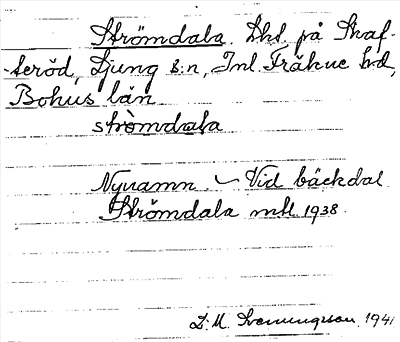 Strömdala. Lht. på Skaf-
-teröd, Ljung s:n, Inl. Fräkne hd,
Bohus län
strö̀mdala
Nynamn. Vid bäckdal
Strömdala mtl. 1938.
D. M. Svenningsson. 1941